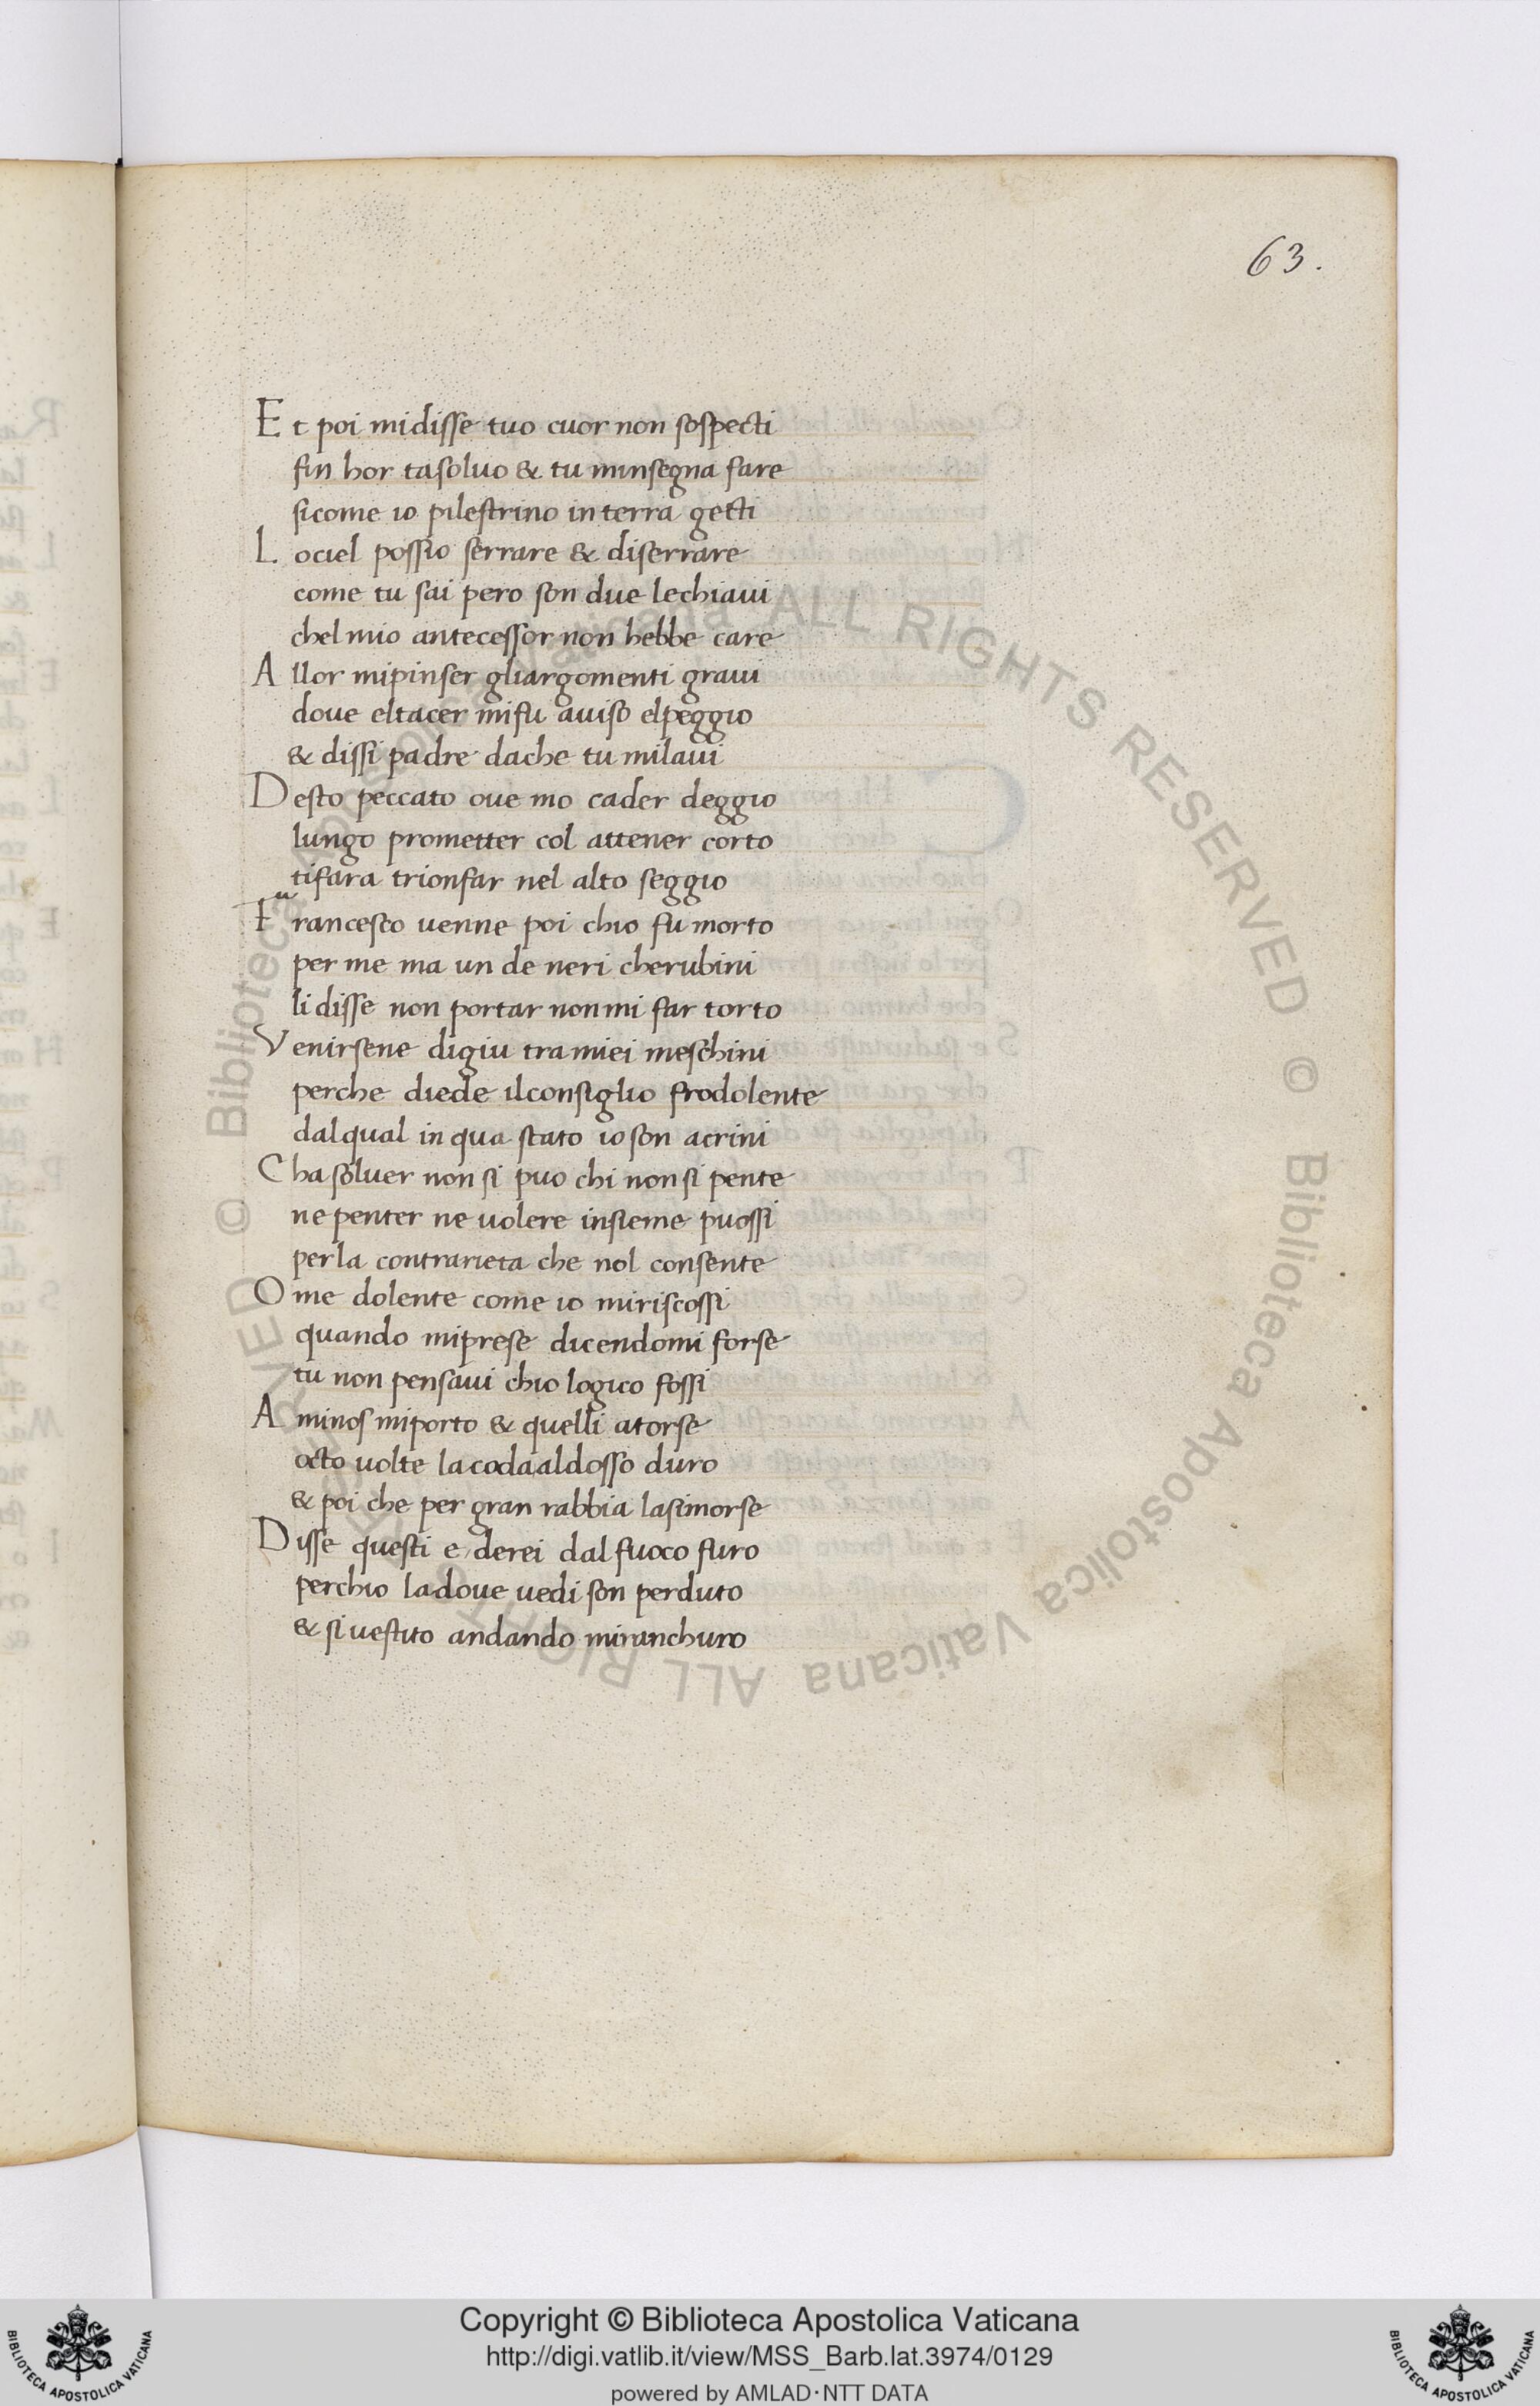 63.
Et poi midisse tuo cuor non sospecti
fin hor tasoluo & tu minsegna fare
sicome io pilestrino in terra getti
Lociel possio serrare & diserrare
come tu sai pero son due lechiaui
chel mio antecessor non hebbe care
Allor mipinser gliargomenti graui
doue eltacer mifu auiso elpeggio
& dissi padre dache tu milaui
Desto peccato oue mo cader deggio
lungo prometter col attener corto
tifara trionfar nel alto seggio
Francesco uenne poi chio fu morto
per me ma un de neri cherubini
li disse non portar non mi far torto
Venirsene digiu tra miei meschini
perche diede ilconsiglio frodolente
dalqual in qua stato io son acrini
Chasoluer non si puo chi non si pente
ne penter ne uolere insieme puossi
perla contrarieta che nol consente
Ome dolente come io miriscossi
quando miprese dicendomi forse
tu non pensaui chio logico fossi
Aminos miporto & quelli atorse
octo uolte lacoda aldosso duro
& poi che per gran rabbia lasimorse
Disse questi e derei dal fuoco furo
perchio ladoue uedi son perduto
& si uestito andando miranchuro
© Biblioteca Apostolica Vaticana ALL RIGHTS RESERVED © Biblioteca Apostolica Vaticana ALL RIGHTS RESERVED
Copyright © Biblioteca Apostolica Vaticana
http://digi.vatlib.it/view/MSS_Barb.lat.3974/0129
powered by AMLAD·NTT DATA
BIBLIOTECA APOSTOLICA VATICANA
BIBLIOTECA APOSTOLICA VATICANA